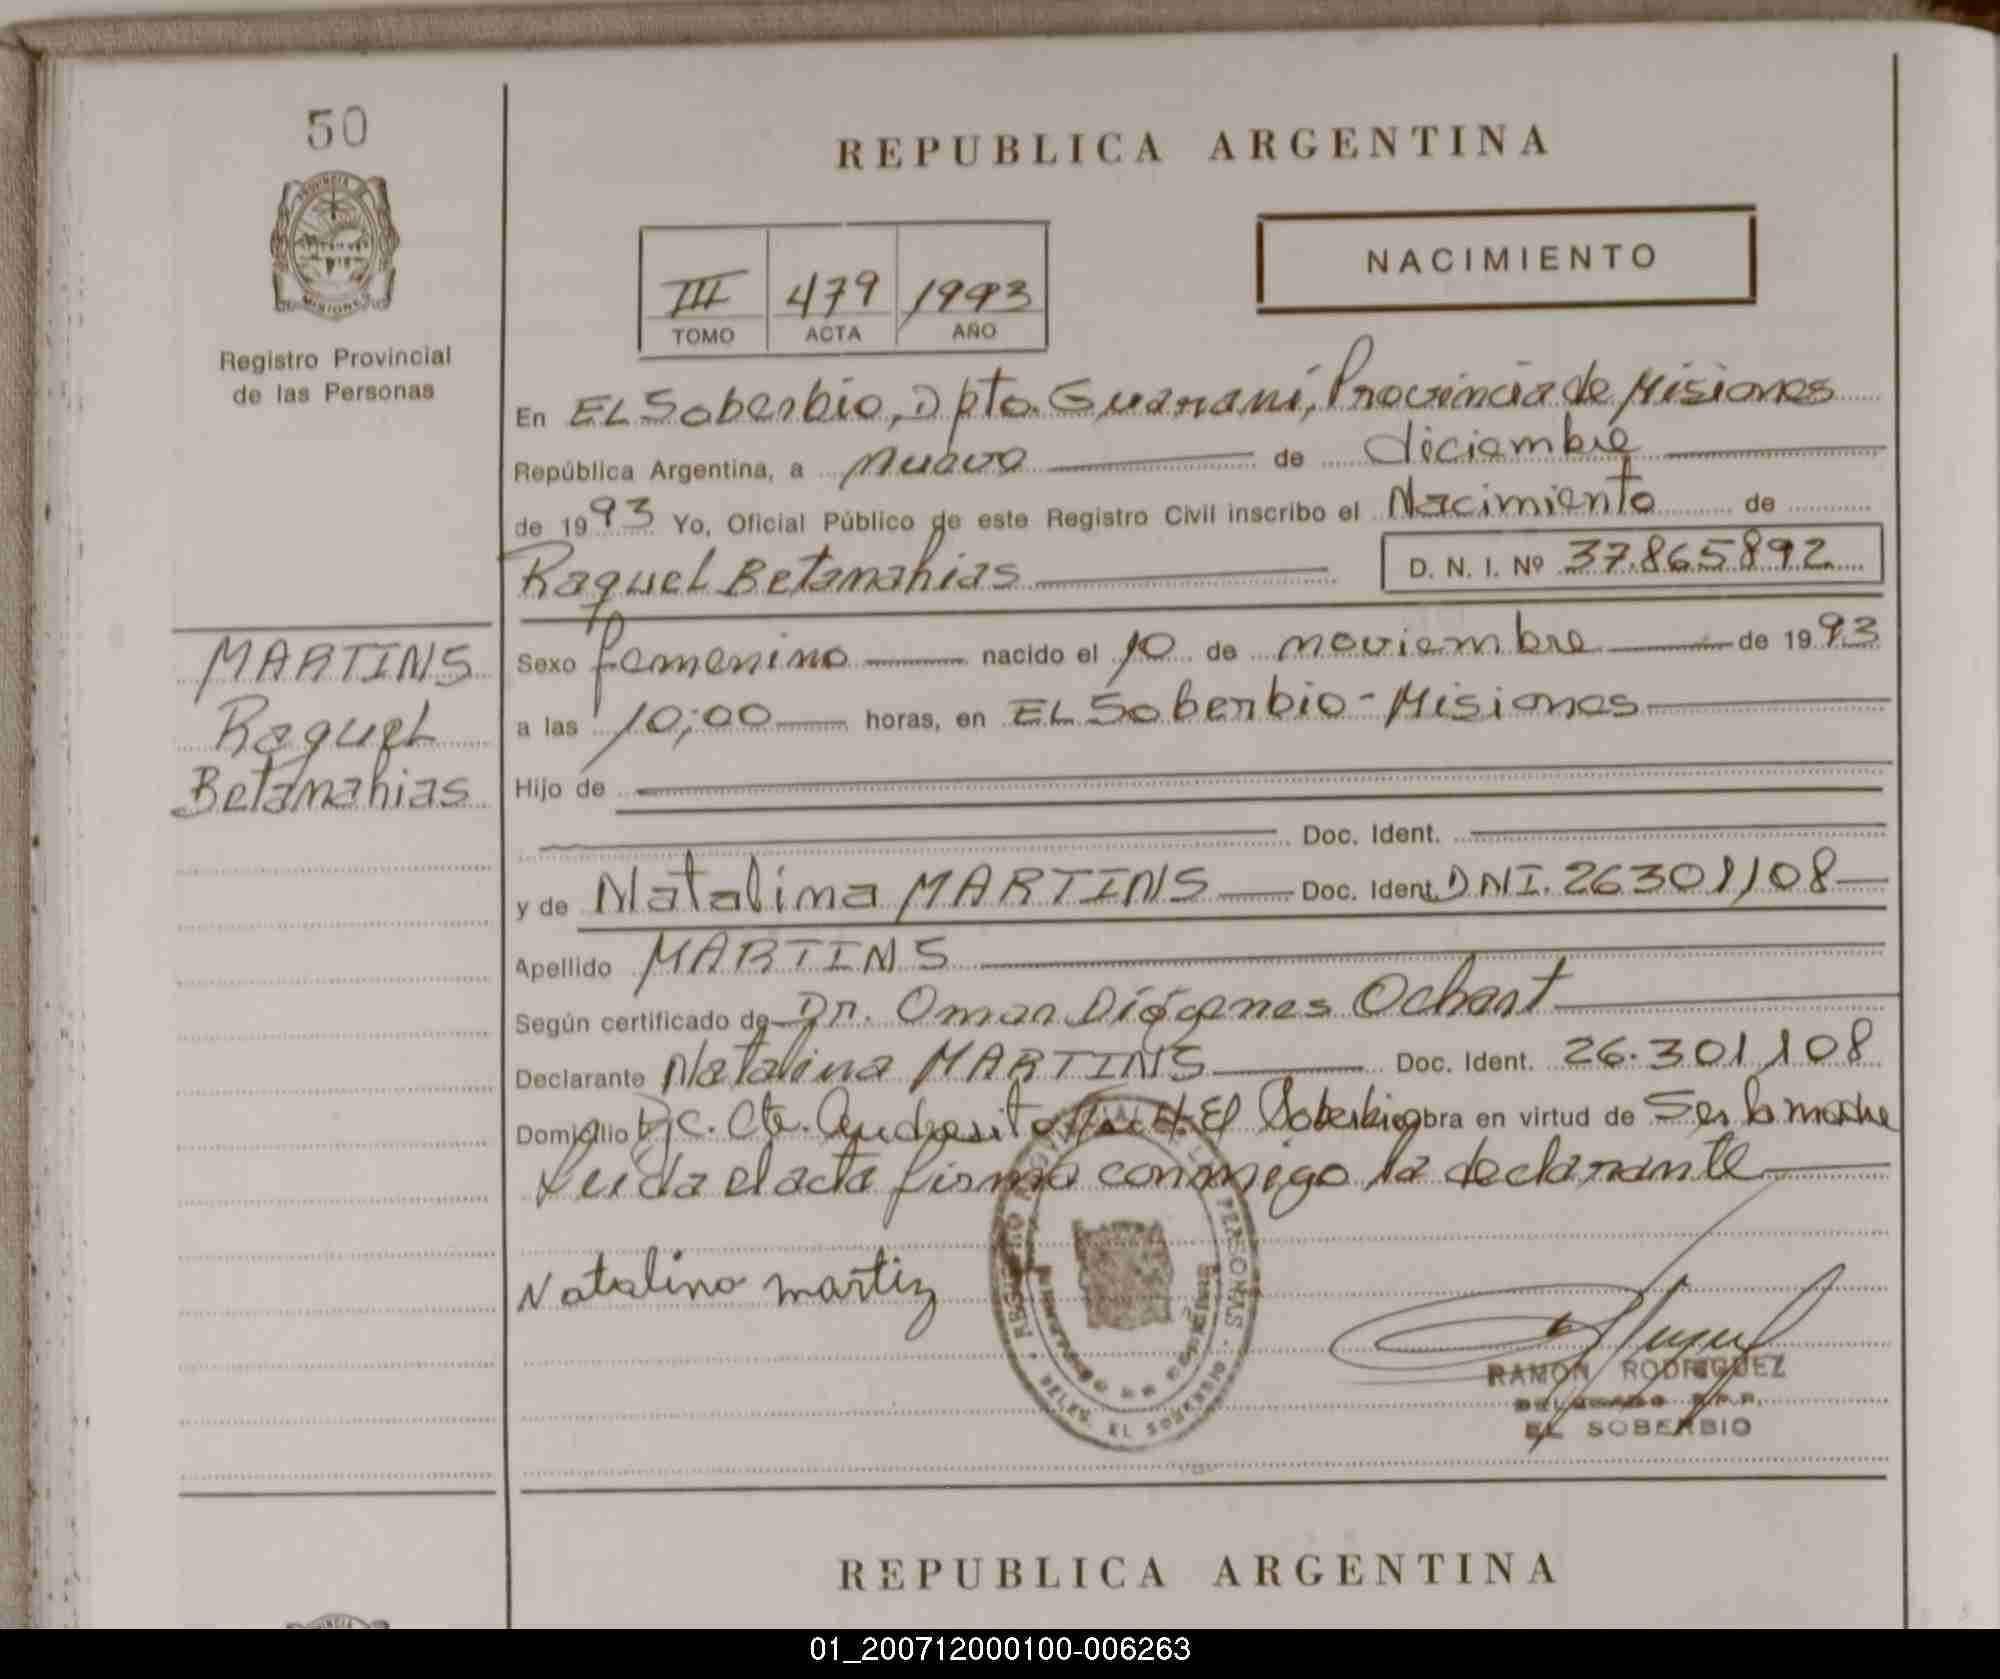 50
PROVINCIA DE
MISIONES
Registro Provincial
de las Personas
REPUBLICA ARGENTINA
NACIMIENTO
III 479 1993
TOMO ACTA AÑO
En EL Soberbio, Dpto. Guarani, Provincia de Misiones
República Argentina, a nueve de diciembre
de 1993 Yo, Oficial Público de este Registro Civil inscribo el Nacimiento de
Raquel Betanahias D. N. I. Nº 37.865.892
MARTINS
Raquel
Betanahias
Sexo femenino nacido el 10 de noviembre de 1993
a las 10;00 horas, en EL Soberbio - Misiones
Hijo de
Doc. Ident.
y de Natalina MARTINS Doc. Ident. DNI. 26301108
Apellido MARTINS
Según certificado de Dr. Omar Diógenes Ochart
Declarante Natalina MARTINS Doc. Ident. 26.301.108
Domicilio Cte. Andresito El Soberbio obra en virtud de Ser la madre
Leida el acta firma conmigo la declarante
Natalino martiz
REGISTRO PROVINCIAL DE LAS PERSONAS
DELEG. EL SOBERBIO
RAMON RODRIGUEZ
DELEGADO R.P.P.
EL SOBERBIO
REPUBLICA ARGENTINA
01_200712000100-006263